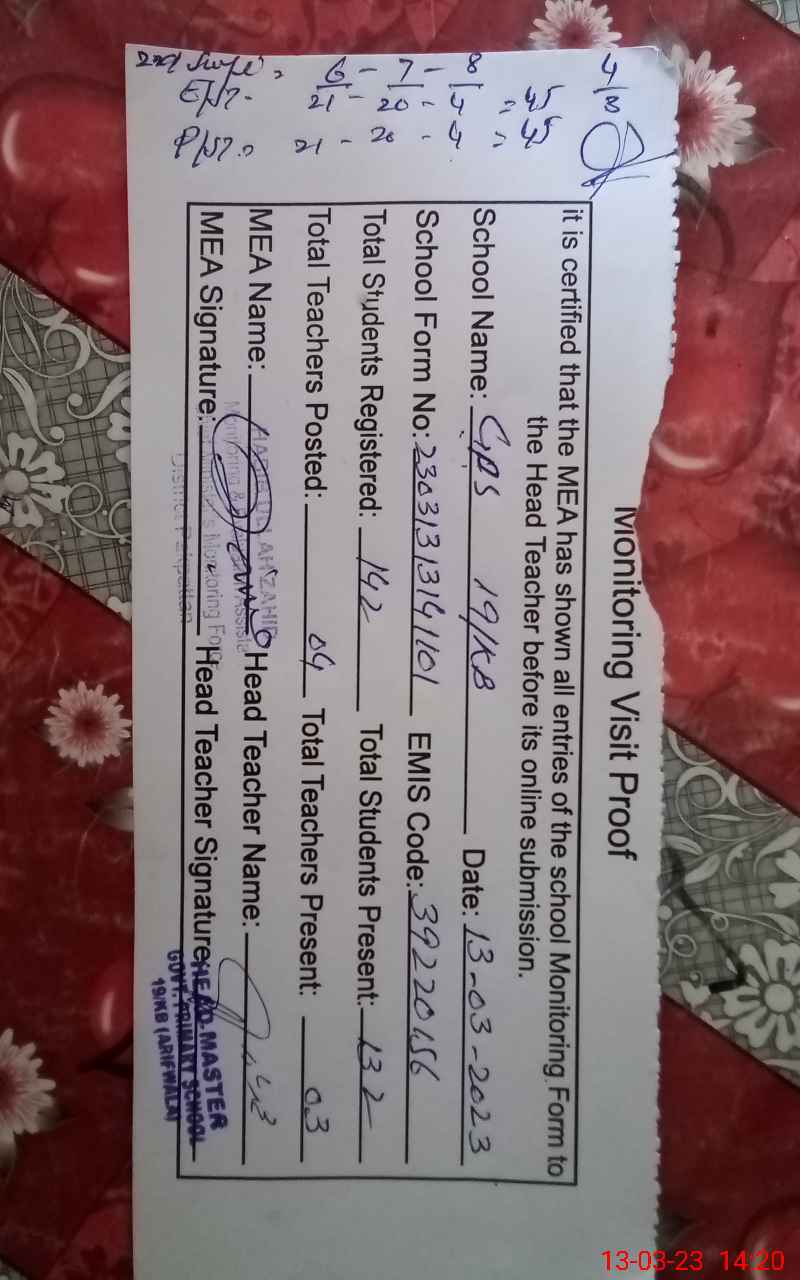 Monitoring Visit Proof
it is certified that the MEA has shown all entries of the school Monitoring Form to
the Head Teacher before its online submission.
School Name: GPS 19/KB Date: 13-03-2023
School Form No: 23031313141101 EMIS Code: 39220156
Total Students Registered: 142 Total Students Present: 132
Total Teachers Posted: 04 Total Teachers Present: 03
MEA Name: Head Teacher Name:
MEA Signature: Head Teacher Signature
ZAHID
Monitoring Assista
Monitoring For
District Pakpattan
HEAD MASTER
GOVT. PRIMARY SCHOOL
19/KB (ARIFWALA)
4/8
6 - 7 - 8
21 - 20 - 4 = 45
21 - 20 - 4 = 45
13-03-23 14:20